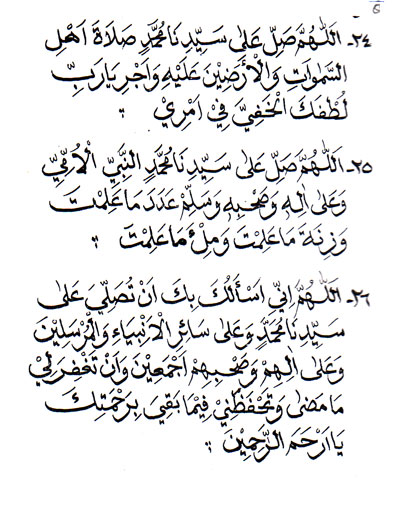 6
٢٤ـ اَللّٰهُمَّ صَلِّ عَلٰى سَيِّدِنَا مُحَمَّدٍ صَلَاةَ اَهْلِ
السَّمٰوَاتِ وَالْاَرْضِيْنَ عَلَيْهِ وَاَجْرِ يَارَبِّ
لُطْفَكَ الْخَفِيَّ فِيْ اَمْرِيْ
٢٥ـ اَللّٰهُمَّ صَلِّ عَلٰى سَيِّدِنَا مُحَمَّدٍ النَّبِيِّ الْاُمِّيِّ
وَعَلٰى اٰلِهٖ وَصَحْبِهٖ وَسَلِّمْ عَدَدَ مَاعَلِمْتَ
وَزِنَةَ مَاعَلِمْتَ وَمِلْءَ مَاعَلِمْتَ
٢٦ـ اَللّٰهُمَّ اِنِّيْ اَسْأَلُكَ بِكَ اَنْ تُصَلِّيَ عَلٰى
سَيِّدِنَا مُحَمَّدٍ وَعَلٰى سَائِرِ الْاَنْبِيَاءِ وَالْمُرْسَلِيْنَ
وَعَلٰى اٰلِهِمْ وَصَحْبِهِمْ اَجْمَعِيْنَ وَاَنْ تَغْفِرَلِيْ
مَامَضٰى وَتَحْفَظَنِيْ فِيْمَا بَقِيَ بِرَحْمَتِكَ
يَااَرْحَمَ الرَّاحِمِيْنَ